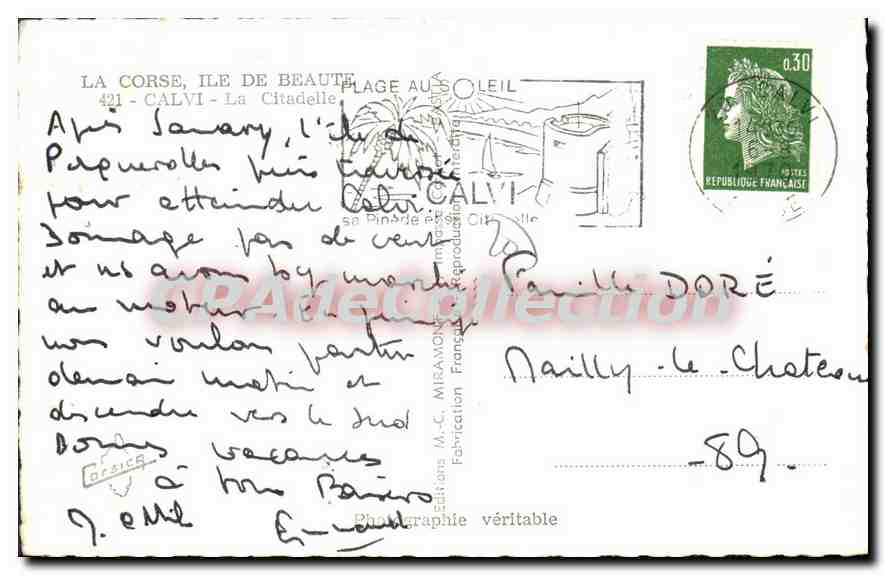 LA CORSE, ILE DE BEAUTE
421 - CALVI - La Citadelle
PLAGE AU SOLEIL
CALVI
sa Pinède et sa Citadelle
0.30
POSTES
REPUBLIQUE FRANÇAISE
CALVI
Après Sanary, l'île de
Porquerolles puis traversée
pour atteindre Calvi.
Dommage pas de vent
et ns avons bq marché
au moteur
nous voulons partir
demain matin et
descendre vers le sud
Bonnes vacances
à tous Baisers
Famille DORÉ
Mailly-le-Chateau
-89.
Corsica
Editions M.-C. MIRAMONT
Fabrication Française Reproduction Interdite
Photographie véritable
CPAdeCollection